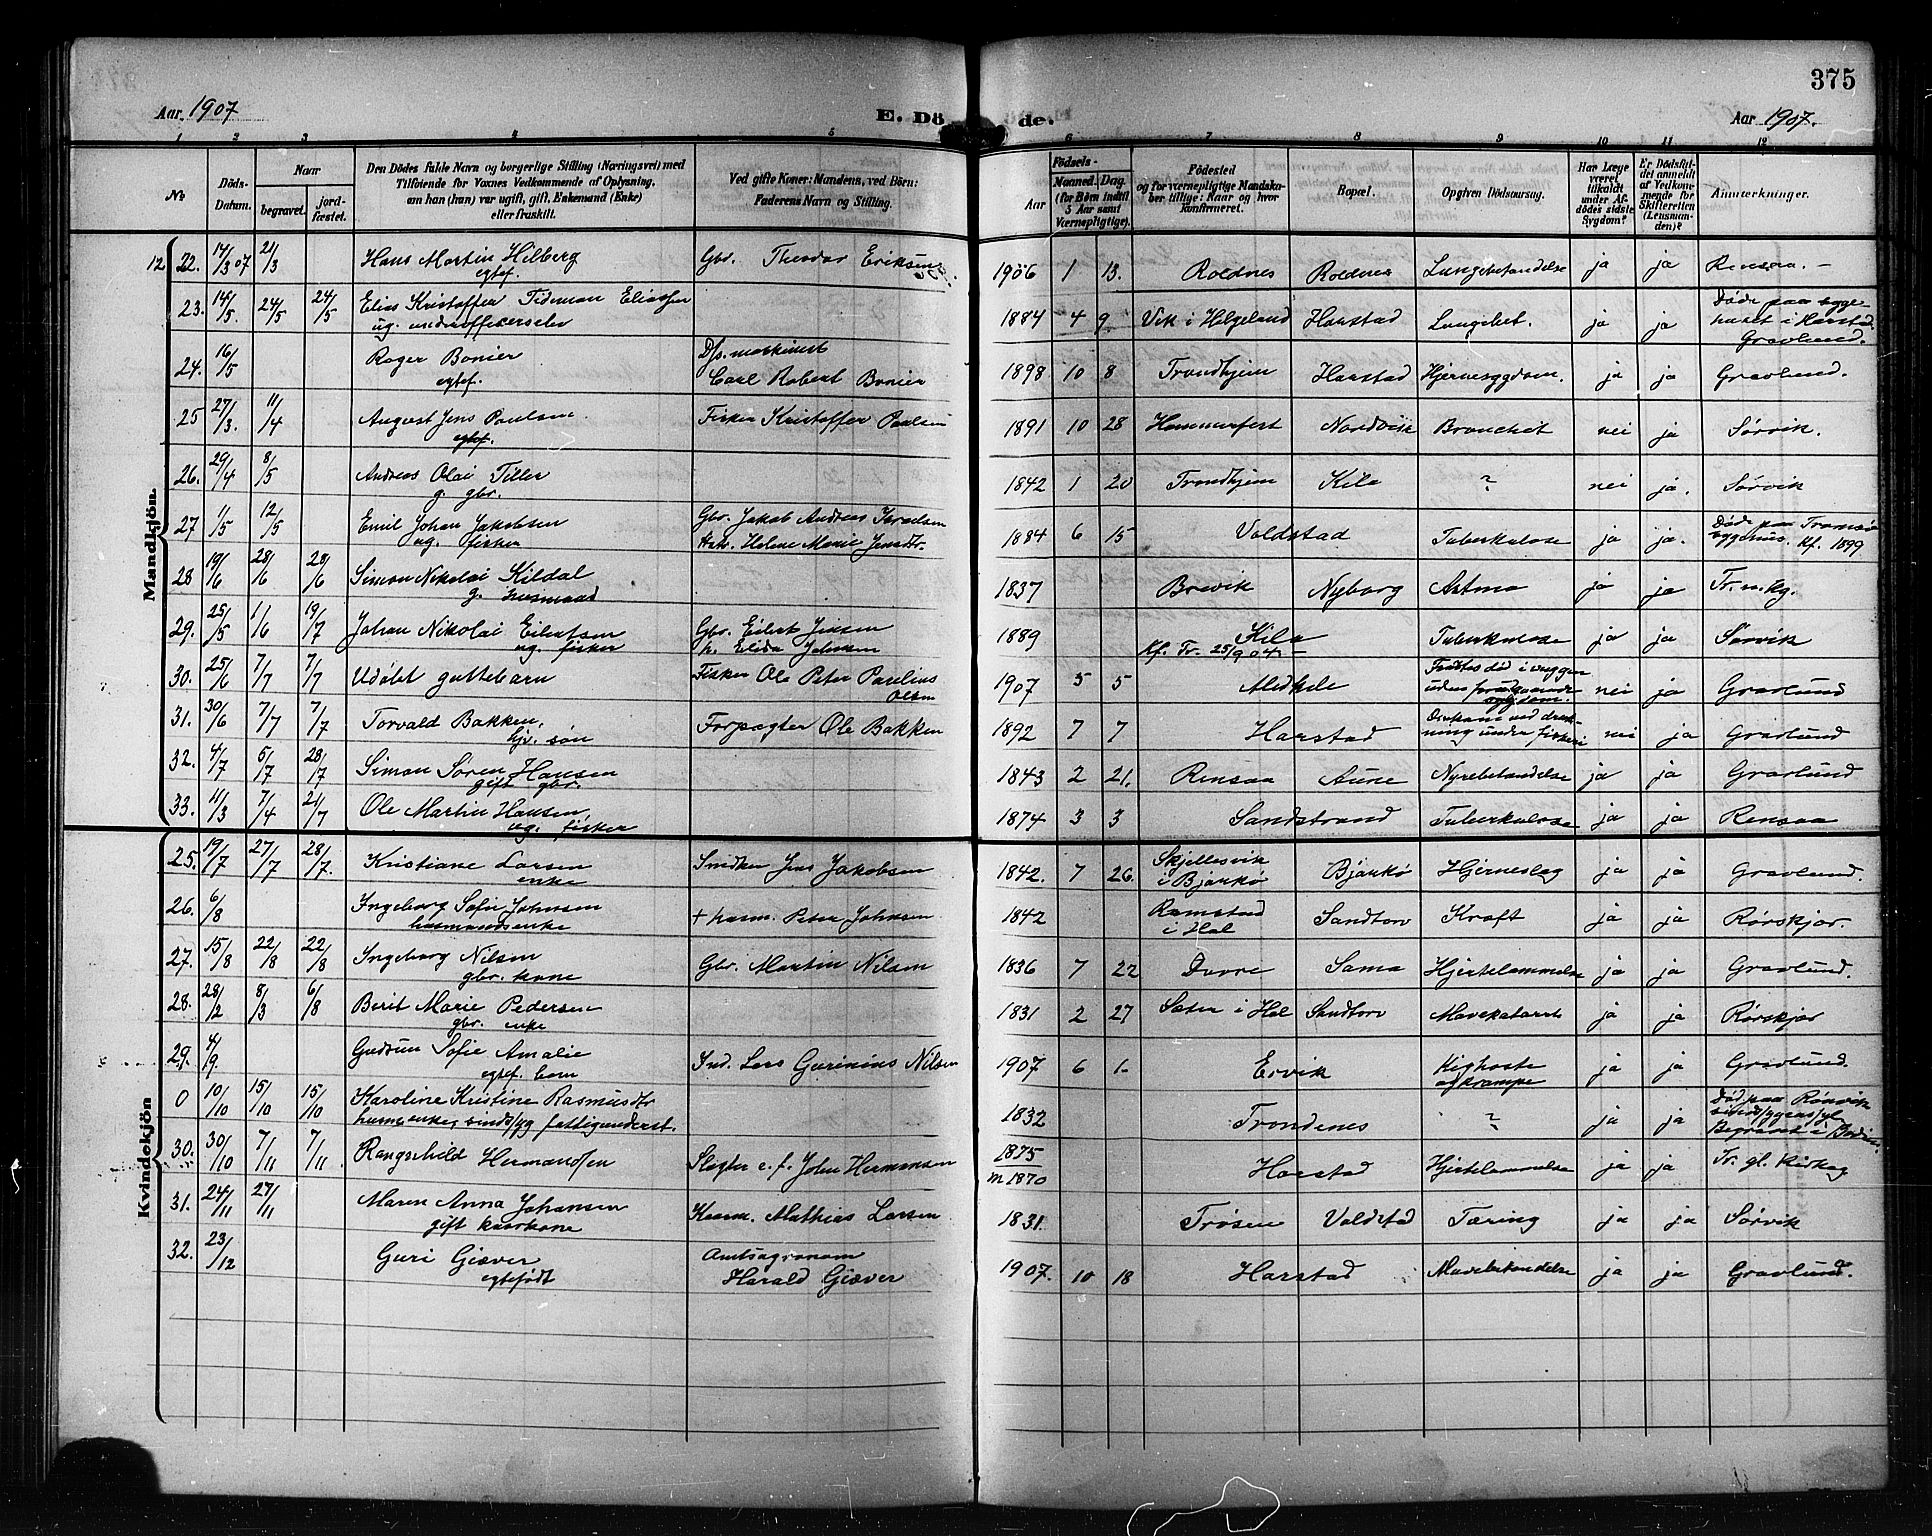 375
Aar 1907
E. Dö
de.
Aar 1907.
1 2 3 4 5 6 7 8 9 10 11 12
No
Döds-Datum.
Naar
begravet.
jord-fæstet.
Den Dödes fulde Navn og borgerlige Stilling (Næringsvei) med
Tilföiende for Voxnes Vedkommende af Oplysning,
om han (hun) var ugift, gift, Enkemand (Enke)
eller fraskilt.
Ved gifte Koner: Mandens, ved Börn:
Faderens Navn og Stilling.
Födsels-
Aar
Maaned. Dag.
(for Börn indtil 5 Aar samt Værnepligtige).
Födested
og for værnepligtige Mandska-
ber tillige: Naar og hvor
konfirmeret.
Bopæl.
Opgiven Dödsaarsag.
Har Læge været tilkaldt under Af-dödes sidste Sygdom?
Er Dödsfal-det anmeldt af Vedkom-mende for Skifteretten (Lensman-den)?
Anmerkninger.
Mandkjön.
12 22. 17/3 07 21/3 Hans Martin Hilberg Gbr. Theodor Eriksen 1906 1 13. Roldnes Roldnes Lungebetændelse ja ja Rensaa. -
egtef.
23. 14/5. 24/5 24/5 Elias Kristoffer Tideman Eliassen 1884 4 9 Vik i Helgeland Harstad Lungebet. ja ja Döde paa syge-
ug. underofficerselev huset i Harstad.
Gravlund.
24. 16/5 Roger Bonier Ds. maskinist 1898 10 8 Trondhjem Harstad Hjernesygdom. ja ja Gravlund.
egtef. Carl Robert Bonier
25 27/3. 11/4 August Jens Paulsen Fisker Kristoffer Paulsen 1891 10 28 Hammerfest Nordvik Bronchit nei ja Sørvik.
egtef.
26. 29/4 8/5 Andreas Olai Tiller 1842 1 20 Trondhjem Kila ? nei ja. Sørvik
g. gbr.
27 11/5 12/5 Emil Johan Jakobsen Gbr. Jakob Andreas Israelsen 1884 6 15 Voldstad Tuberkulose ja ja. Döde paa Tromsø
ug. fisker Hstr. Helene Marie Jensdtr. sygehus. Kf. 1899
28 19/6 28/6 28/6 Simon Nikolai Kildal 1837 Brevik Nyborg Astma ja ja Tr. n. kg.
g. husmand
29. 25/5 1/6 19/7 Johan Nikolai Eilertsen Gbr. Eilert Jensen 1889 Kila Tuberkulose ja ja Sørvik
ug. fisker h. Elida Johnsen Kf. Tr. 25/9 04 -
30. 25/6 7/7 7/7 Udöbt guttebarn Fisker Ole Peter Parelius 1907 5 5 Medkile Fandtes död i vuggen nei ja Gravlund
Olsen uden forudgaaende sygdom.
31. 30/6 7/7 7/7 Torvald Bakken, Forpagter Ole Bakken 1892 7 7 Harstad Omkom ved druk- nei ja Gravlund
hjv. sön ning under fiskeri
32. 4/7 6/7 28/7 Simon Sören Hansen 1843 2 21. Rensaa Aune Nyrebetændelse ja ja Gravlund
gift gbr.
33. 11/3 7/4 21/7 Ole Martin Hansen, 1874 3 3 Sandstrand Tuberkulose ja ja Rensaa
ug. fisker
Kvindekjön
25. 19/7 27/7 28/7. Kristiane Larsen Smeden Jens Jakobsen 1842. 7 26. Skjellesvik Bjarkö Hjerneslag ja ja Gravlund.
enke i Bjarkö
26. 6/8 Ingeborg Sofie Johnsen + husm. Peter Johnsen 1842 Ramstad Sandtorv Kræft ja ja Rørskjær.
husmandsenke i Hol
27. 15/8 22/8 22/8 Ingeborg Nilsen Gbr. Martin Nilsen 1836 7 22 Dovre Sama Hjertelammelse ja ja Gravlund.
gbr. kone
28. 28/2 8/3 6/8 Berit Marie Pedersen 1831 2 27 Sæter i Hol Sandtorv Mavekatarrh ja ja Rørskjær
gbr. enke
29. 4/9. Gudrun Sofie Amalie Ind. Lars Gerinius Nilsen 1907 6 1. Ervik Kighoste ja ja Gravlund.
egtef. barn og krampe
0 10/10 15/10 15/10 Karoline Kristine Rasmusdtr 1832 Trondenes ? ja ja Död paa Rönvik
husm. enke, sindssyg fattigunderst. sindssygeasyl
Begravet i Bodin.
30. 30/10 7/11 7/11. Rangschild Hermansen Slagter e. f. John Hermansen 1875 Harstad Hjertelammelse ja ja Tr. gl. Kirkeg
m 1870
31. 24/11 27/11 Maren Anna Johansen Kaarm. Mathias Larsen 1831. Trøsen Voldstad Tæring ja ja Sørvik
gift kaarkone
32. 23/12 Guri Giæver Amtsagronom 1907. 10 18 Harstad Mavebetændelse ja ja Gravlund.
egtefödt Harald Giæver